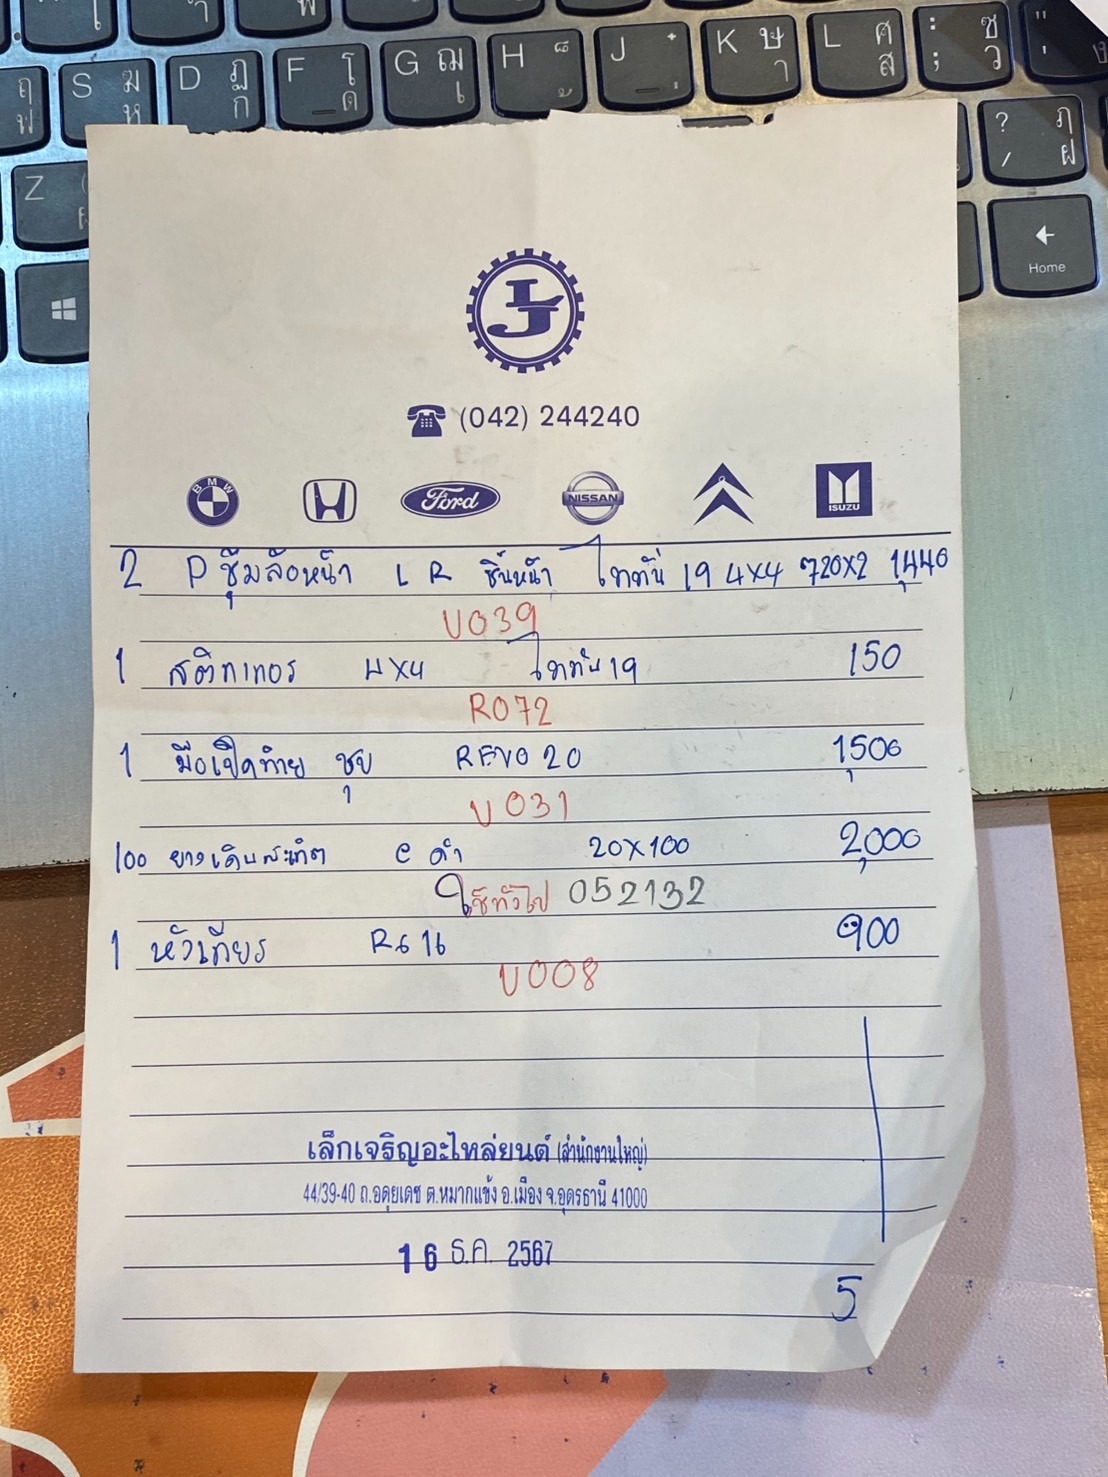 S ฆ ห
D ฏ ก
F โ ด
G ฌ เ
H ็ ้
J ๋ ่
K ษ า
L ศ ส
: ; ซ ว
" '
Z
? / ฦ ฝ
Home
LJ
(042) 244240
BMW
H
Ford
NISSAN
ISUZU
2 P ซุ้มล้อหน้า L R ชิ้นหน้า ไททั่น 19 4x4 720x2 1,440
U039
1 สติกเกอร์ 4x4 ไททัน 19 150
R072
1 มือเปิดท้าย ชุบ REVO 20 1,500
U031
100 ยางเดินสะเก็ต e ดำ 20x100 2,000
ใช้ทั่วไป 052132
1 หัวเกียร R6 16 900
U008
เล็กเจริญอะไหล่ยนต์ (สำนักงานใหญ่)
44/39-40 ถ.อดุยเดช ต.หมากแข้ง อ.เมือง จ.อุดรธานี 41000
16 ธ.ค. 2567
5